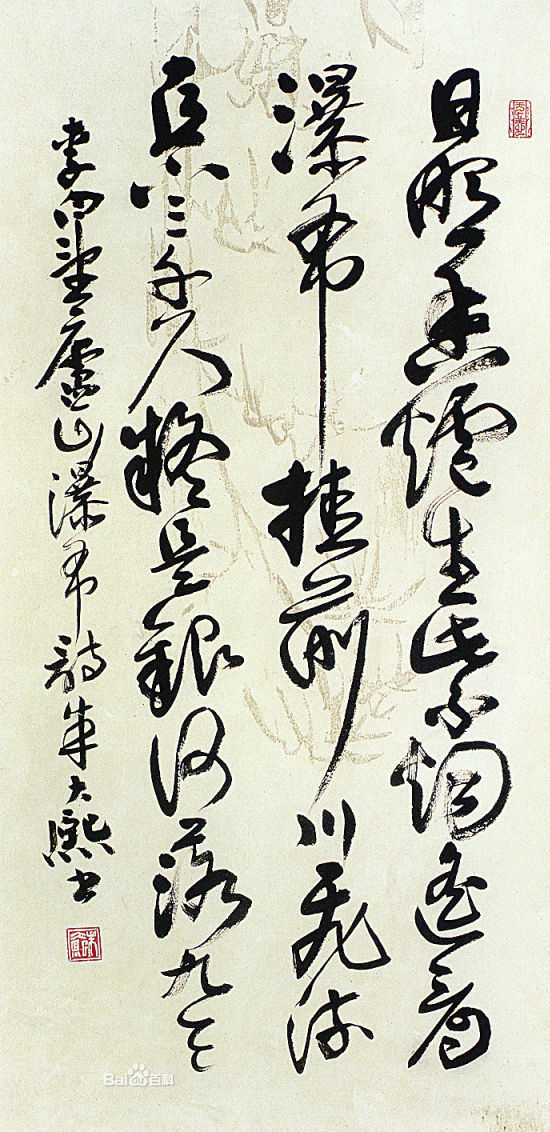 日照香爐生紫烟遙看
瀑布挂前川飛流
直下三千尺疑是銀河落九天
李白望廬山瀑布詩朱大熙書
Bai百科